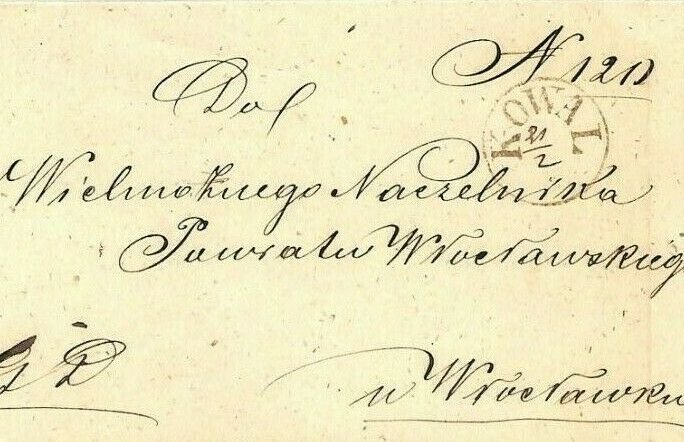 N 1211
KOWAL
21/2
Do
Wielmożnego Naczelnika
Powiatu Włocławskieg
G D
w Włocławku